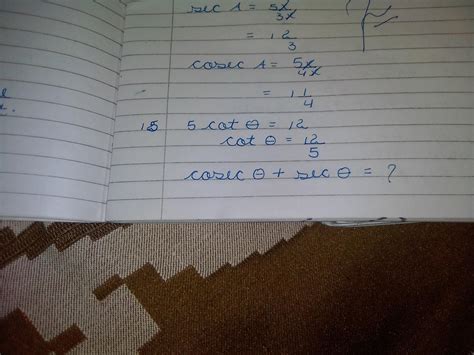 sec A = 5x/3x
= 1 2/3
cosec A = 5x/4x
= 1 1/4
15 5 cot θ = 12
cot θ = 12/5
cosec θ + sec θ = ?